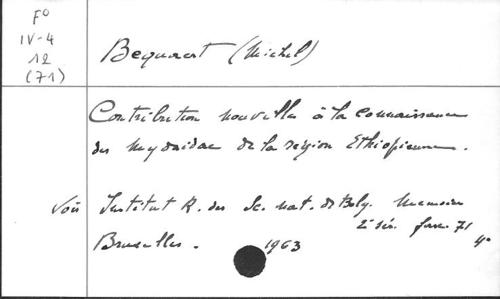 Fº
IV-4
12
(71)
Bequaert (Michel)
Contribution nouvelle à la connaissance
des Mydaidae de la région Ethiopienne.
Voir Institut R. des Sc. nat. de Belg. Memoire
2e sér. fasc. 71
Bruxelles. 1963 4º